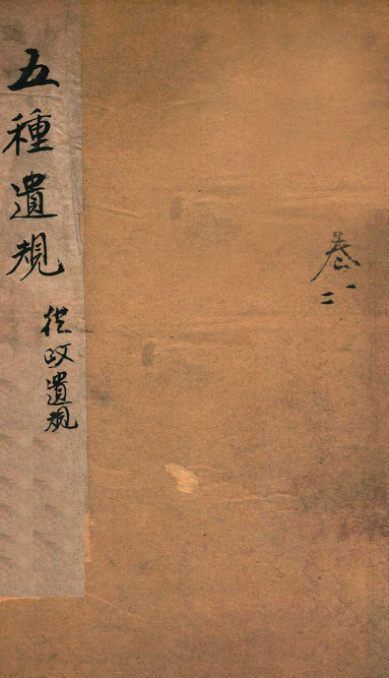 五種遺規
從政遺規
卷一
二